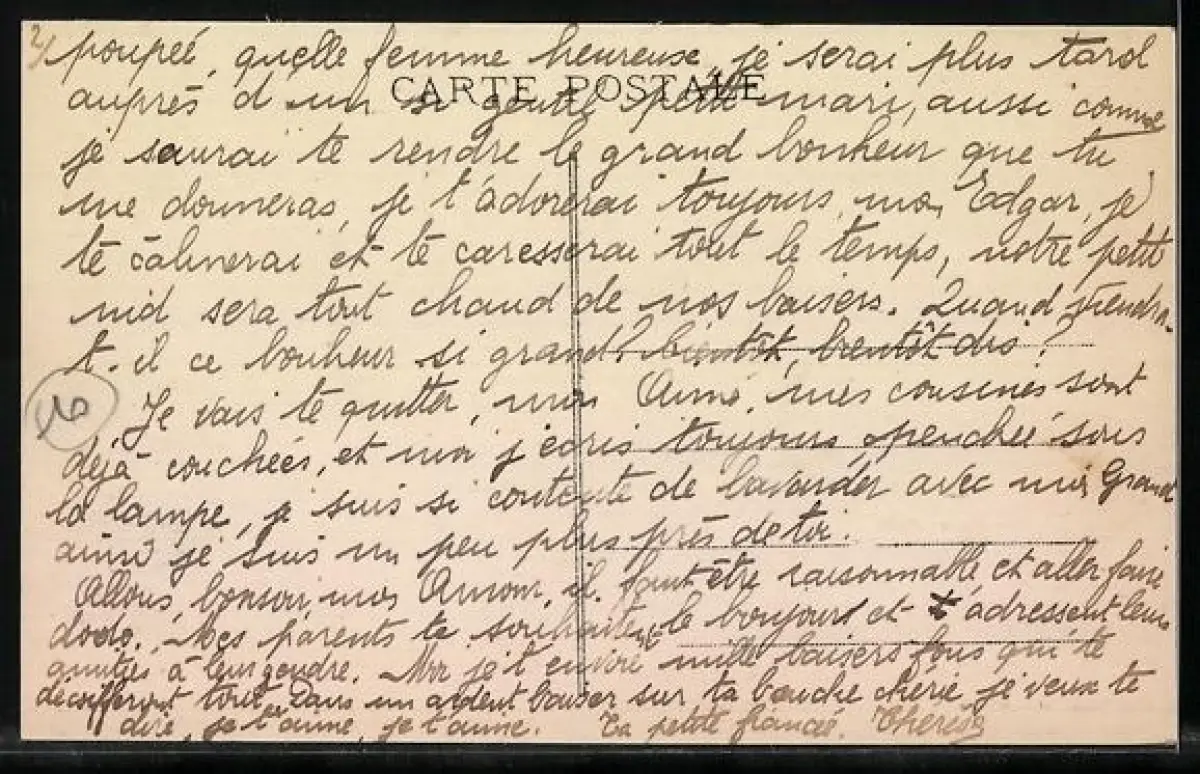 2/ poupée, quelle femme heureuse je serai plus tard
CARTE POSTALE
auprès d'un si gentil petit mari, aussi comme
je saurai te rendre le grand bonheur que tu
me donneras, je t'adorerai toujours, mon Edgar, je
te câlinerai et te caresserai tout le temps, notre petit
nid sera tout chaud de nos baisers. Quand viendra-
t-il ce bonheur si grand? bientôt, bientôt dis?
Je vais te quitter, mon Aimé, mes cousines sont
déjà couchées, et moi j'écris toujours, penchée sous
la lampe, je suis si contente de bavarder avec mon Grand
aimé je suis un peu plus près de toi.
Allons, bonsoir, mon Amour, il faut être raisonnable et aller faire
dodo. Mes parents te souhaitent le bonjour et t'adressent leurs
amitiés à leur gendre. Moi je t'envoie mille baisers fous qui te
décoifferont tout. Dans un ardent baiser sur ta bouche chérie je veux te
dire, je t'aime, je t'aime. Ta petite fiancée. Thérèse